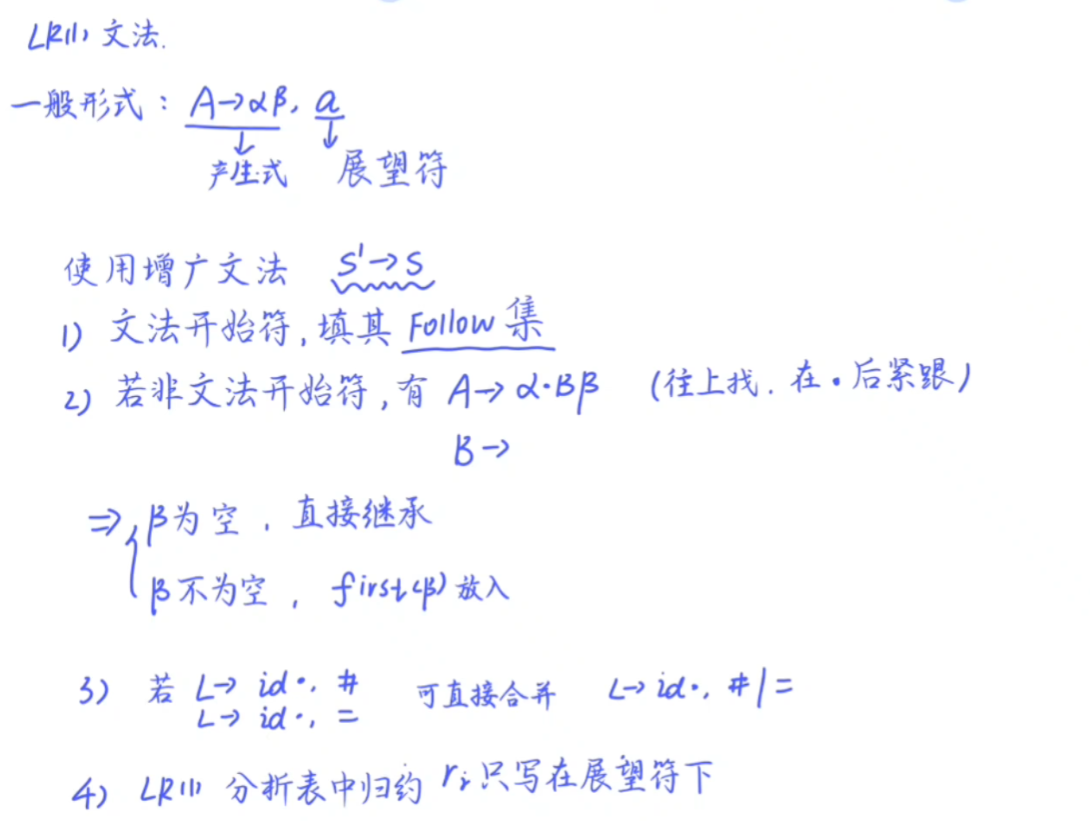 LR(1) 文法.
一般形式: A→αβ, a
产生式 展望符
使用增广文法 S'→S
1) 文法开始符,填其 Follow 集
2) 若非文法开始符,有 A→α·Bβ (往上找.在·后紧跟)
B→
⇒{ β为空,直接继承
β不为空,first(β)放入
3) 若 L→ id·, # 可直接合并 L→id·, #|=
L→ id·, =
4) LR(1) 分析表中归约 ri只写在展望符下